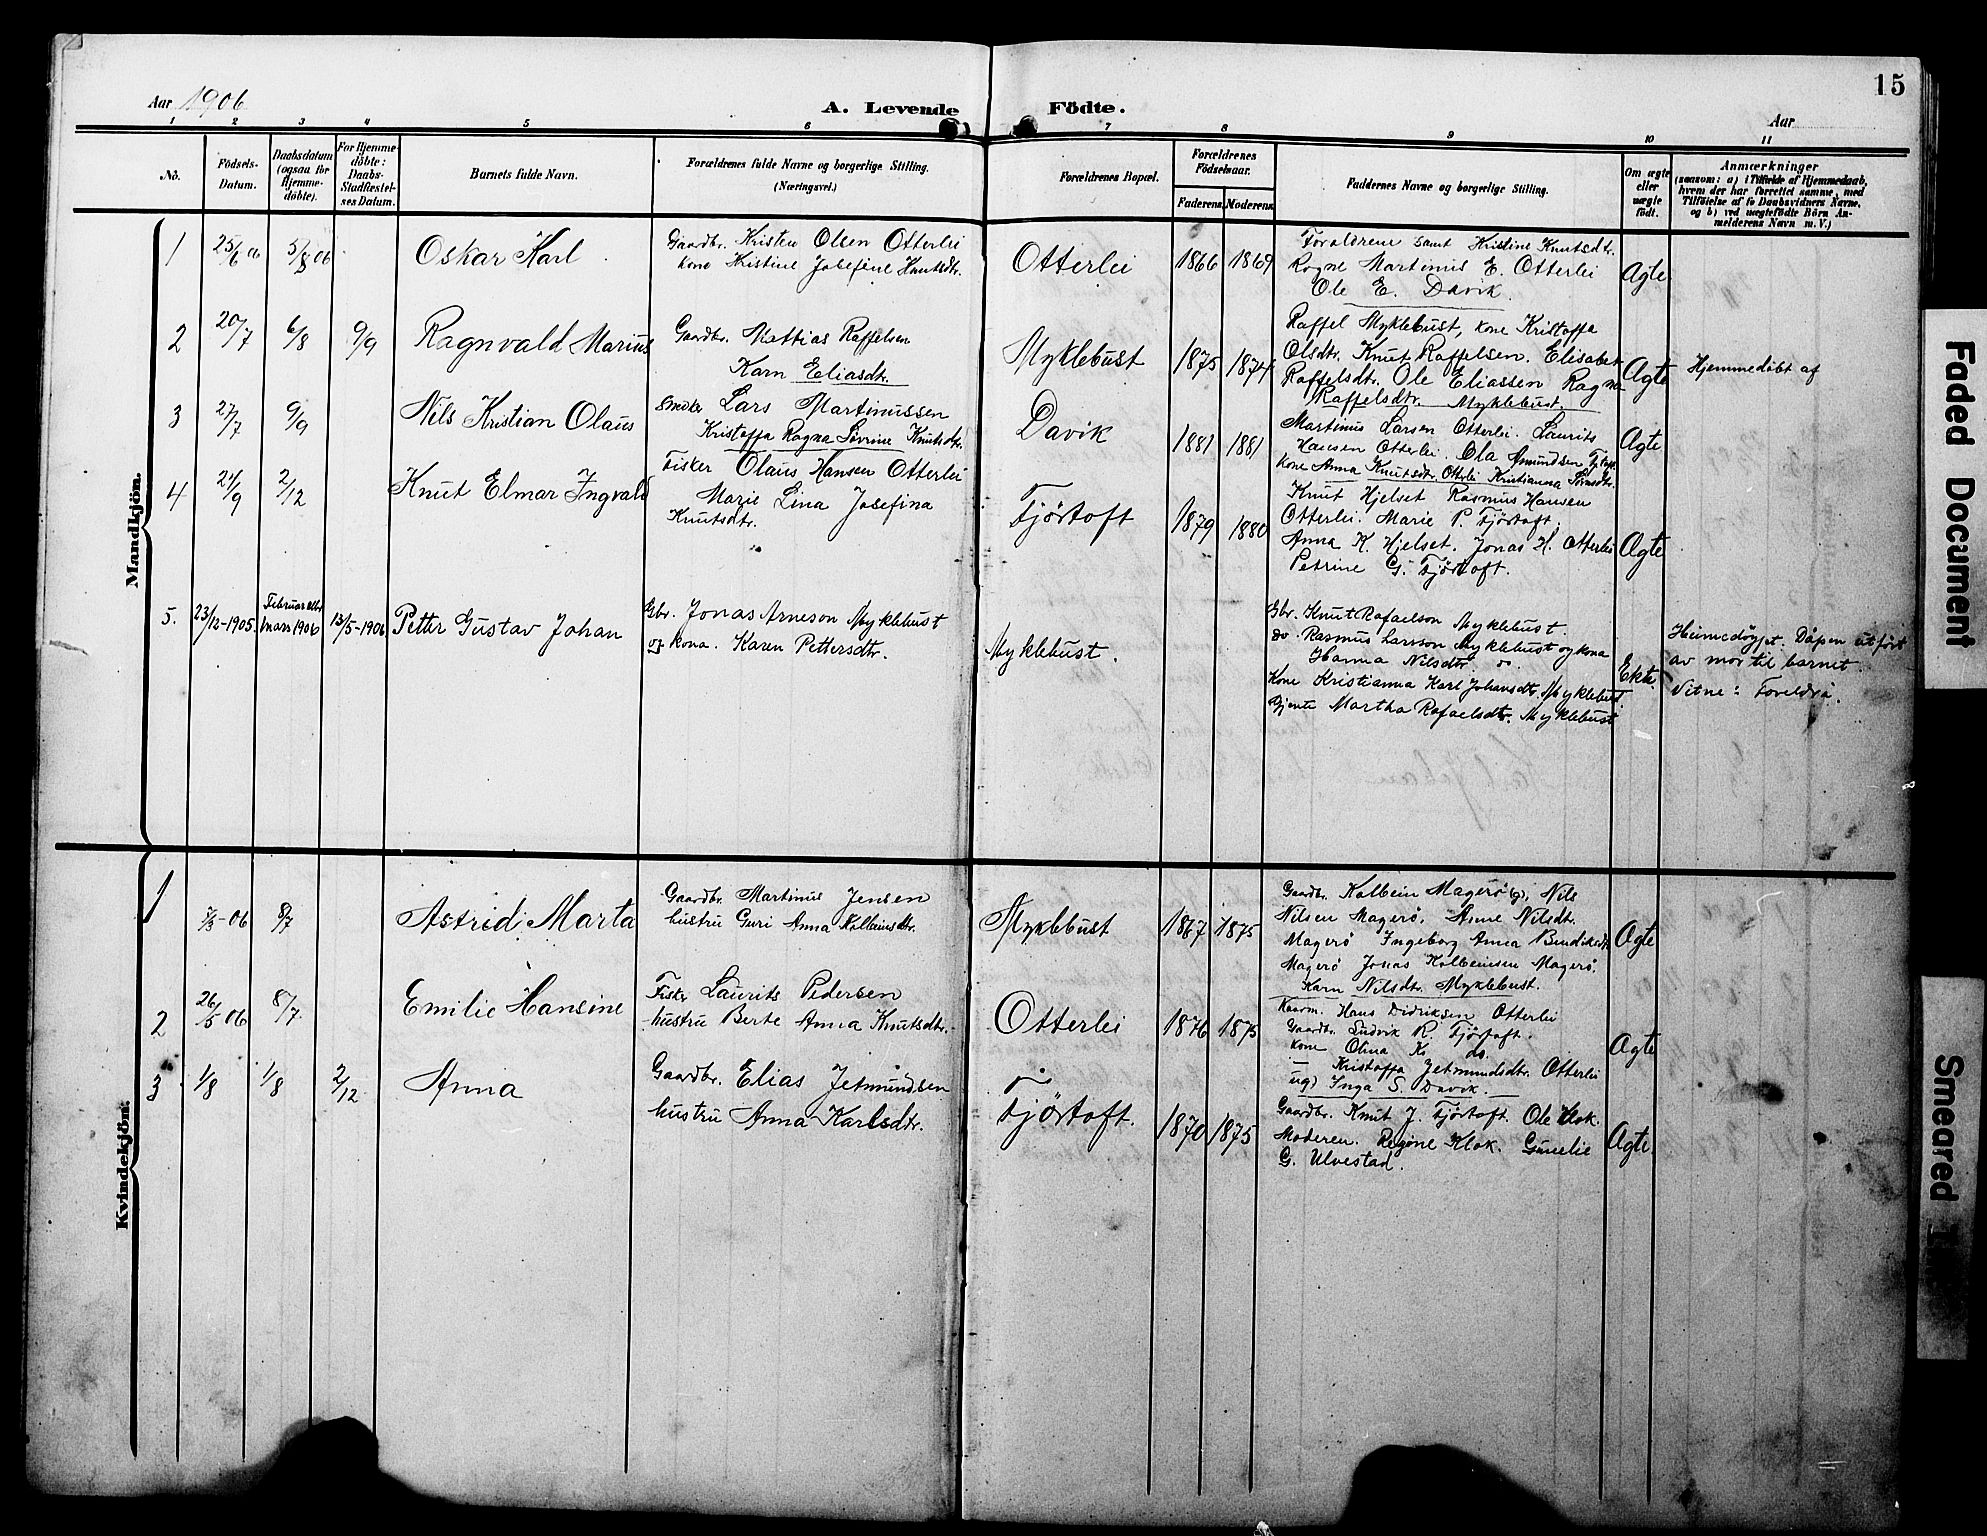 15
Aar 1906
A. Levende Födte.
Aar
1 2 3 4 5 6 7 8 9 10 11
No.
Födsels-Datum.
Daabsdatum (ogsaa for Hjemme-döbte).
For Hjemme-döbte: Daabs-Stadfæstel-ses Datum.
Barnets fulde Navn.
Forældrenes fulde Navne og borgerlige Stilling.
(Næringsvei.)
Forældrenes Bopæl.
Forældrenes Födselsaar.
Faderens. Moderens.
Faddernes Navne og borgerlige Stilling.
Om ægte eller uægte födt.
Anmærkninger
(saasom: a) i Tilfælde af Hjemmedaab,
hvem der har forrettet samme, med
Tilföielse af to Daabsvidners Navne,
og b) ved uægtefödte Börn An-
melderens Navn m. V.)
Mandkjön.
1 25/6 06 5/8 06 Oskar Karl
Gaardbr. Kristen Olsen Otterlei
kone Kristine Josefine Knutsdtr.
Otterlei 1866 1869
Foræaldrene samt Kristine Knutsdtr.
Ragne Martinus E. Otterlei
Ole E. Davik.
Agte
2 20/7 6/8 9/9 Ragnvald Marius
Gaardbr. Mattias Raffelsen
Karn Eliasdtr.
Myklebust 1875 1874
Raffel Myklebust, kone Kristoffa
Olsdtr. Knut Raffelsen. Elisabet
Raffelsdtr. Ole Eliassen Ragna
Raffelsdtr. Myklebust.
Agte
Hjemmedöbt af
3 27/7 9/9 Nils Kristian Olaus
Smeker Lars Martinussen
Kristoffa Ragna Sövrine Knutsdtr.
Davik 1881 1881
Martinus Larsen Otterlei. Laurits
Hansen Otterlei. Ola Amundsen
kone Anna Knutsdtr. Otterlei Kristianna
Agte
4 21/9 2/12 Knut Elmar Ingvald
Fisker Olaus Hansen Otterlei
Marie Lina Josefina
Knutsdtr.
Fjörtoft 1879 1880
Knut Hjelset Rasmus Hansen
Otterlei. Marie P. Fjörtoft.
Anna K. Hjelset. Jonas H. Otterlei
Petrine G. Fjörtoft.
Agte
5. 23/12-1905. Februar eller mars 1906 13/5-1906 Petter Gustav Johan
Gbr. Jonas Arneson Myklebust
og kona. Karen Pettersdtr.
Myklebust.
Gbr. Knut Rafaelson Myklebust.
do. Rasmus Larsson Myklebust og kona
Hanna Nilsdtr. do.
Kone Kristianna Karl Johansdtr. Myklebust.
Gjente Martha Rafaelsdtr. Myklebust
Ekte.
Heimedöypt. Dåpen utfört
av mor til barnet.
Vitne: Foreldra.
Kvindekjön.
1 7/3-06 8/7 Astrid Marta
Gaardbr. Martinus Jensen
hustru Guri Anna Kolbeinsdtr.
Myklebust 1867 1875
Gaardbr. Kolbein Magerö (g), Nils
Nilsen Magerö. Anne Nilsdtr.
Magerö Ingeborg Anna Bendiksdtr.
Magerö Jonas Kolbeinsen Magerö.
Karn Nilsdtr. Myklebust.
Agte
2 26/5 06 8/7. Emilie Hansine
Fisker Laurits Pedersen
hustru Berte Anna Knutsdtr.
Otterlei 1876 1875
Kaarm. Hans Didriksen Otterlei
Gaardbr. Ludvik R. Fjörtoft.
kone Olina K. do.
— Kristoffa Jetmundsdtr. Otterlei
ug) Inga S. Davik.
Agte
3 1/8 1/8 2/12 Anna
Gaardbr. Elias Jetmundsen
hustru Anna Karlsdtr.
Fjörtoft. 1870 1875
Gaardbr. Knut J. Fjörtoft. Ole Klok.
Moderen. Regine Klok. Gurelie
G. Ulvestad.
Agte.
Faded Document
Smeared